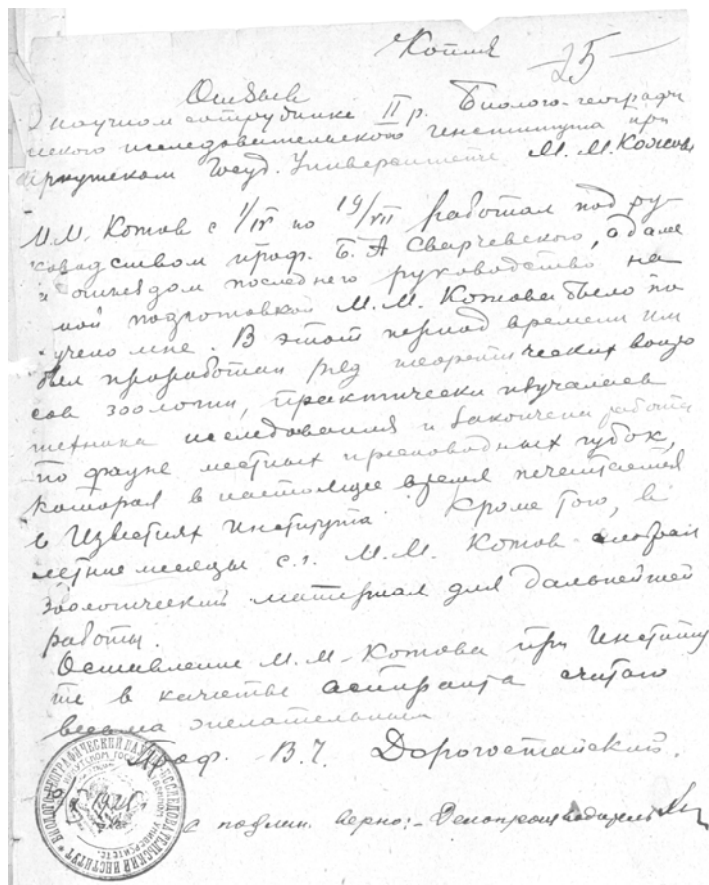 Копия
25
Отзыв
О научном сотруднике II р. Биолого-географи
ческого исследовательского Института при
Иркутском Госуд. Университете М. М. Кожова
М.М. Кожов с 1/IV по 19/VII работал под ру-
ководством проф. Б. А Сварчевского, а далее
с отъездом последнего руководство на
ной подготовкой М. М. Кожова было по
ручено мне. В этот период времени им
был проработан ряд теоретических вопро
сов зоологии, практически изучалась
техника исследования и закончена работа
по фауне местных пресноводных губок,
которая в настоящее время печатается
в Известиях Института. Кроме того, в
летние месяцы с.г. М. М. Кожов собрал
зоологический материал для дальнейшей
работы.
Оставление М. М. Кожова при Институ
те в качестве аспиранта считаю
весьма желательным
Проф. В. Ч. Дорогостайский.
С подлин. верно: - Делопроизводитель
БИОЛОГО-ГЕОГРАФИЧЕСКИЙ НАУЧ.-ИССЛЕДОВАТЕЛЬСКИЙ ИНСТИТУТ